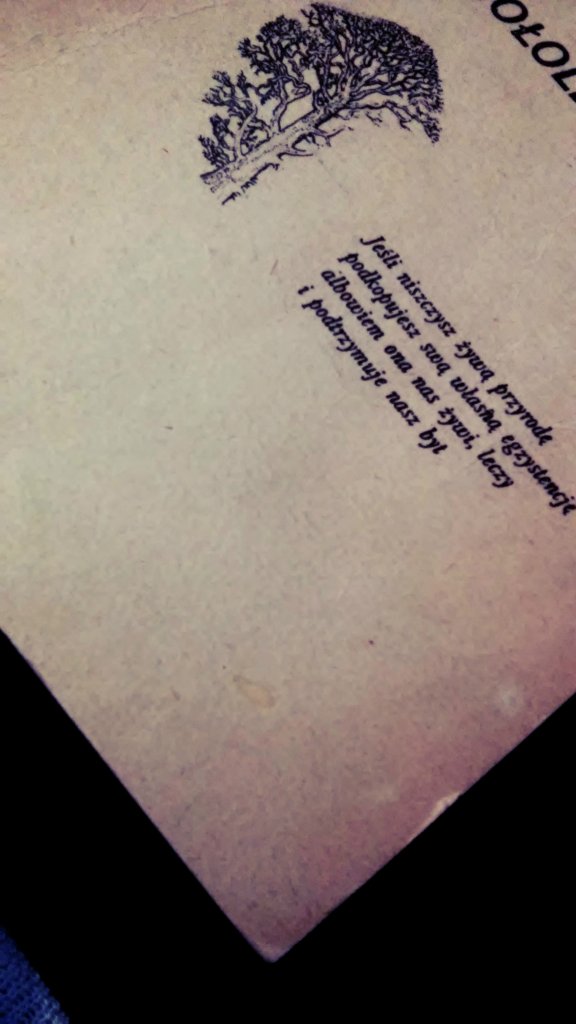 Jeśli niszczysz żywą przyrodę
podkopujesz swą własną egzystencję
albowiem ona nas żywi, leczy
i podtrzymuje nasz byt